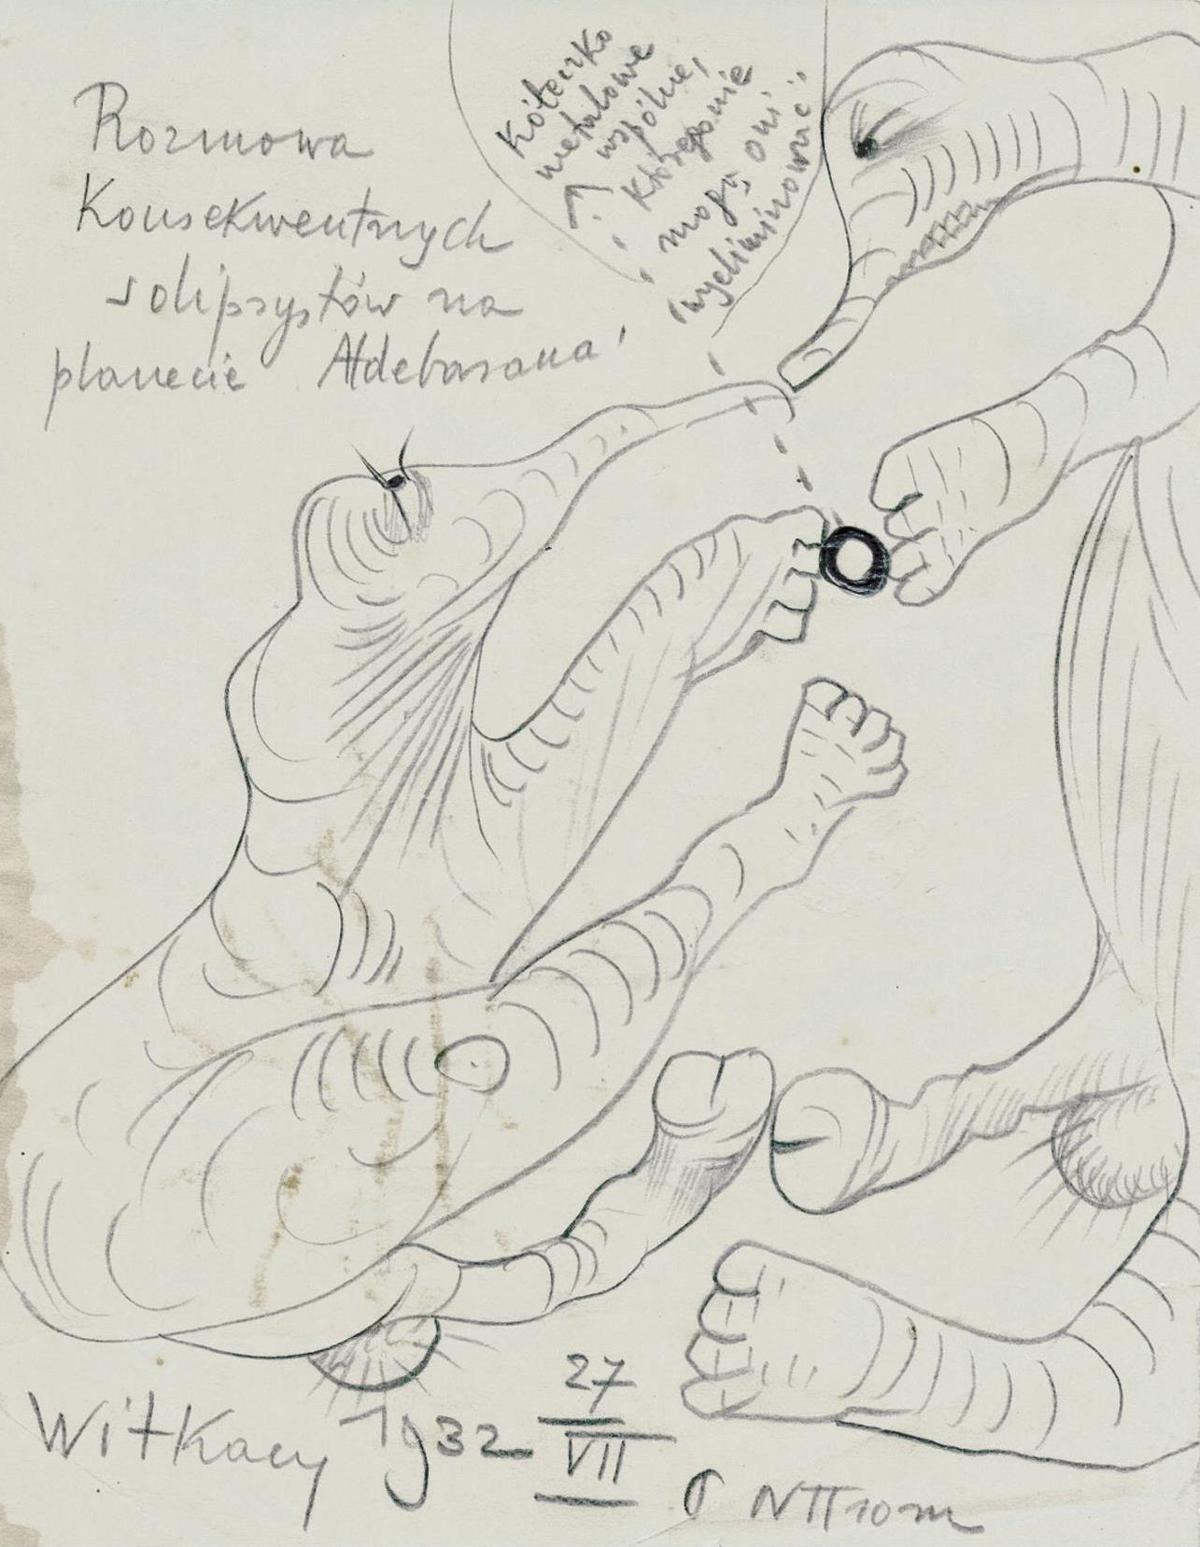 Rozmowa
Konsekwentnych
solipsystów na
planecie Aldebarana
Kółeczko
metalowe
wspólne,
którego nie
mogą oni
"wyeliminować"
Witkacy 1932 27
VII
NΠ 10 m